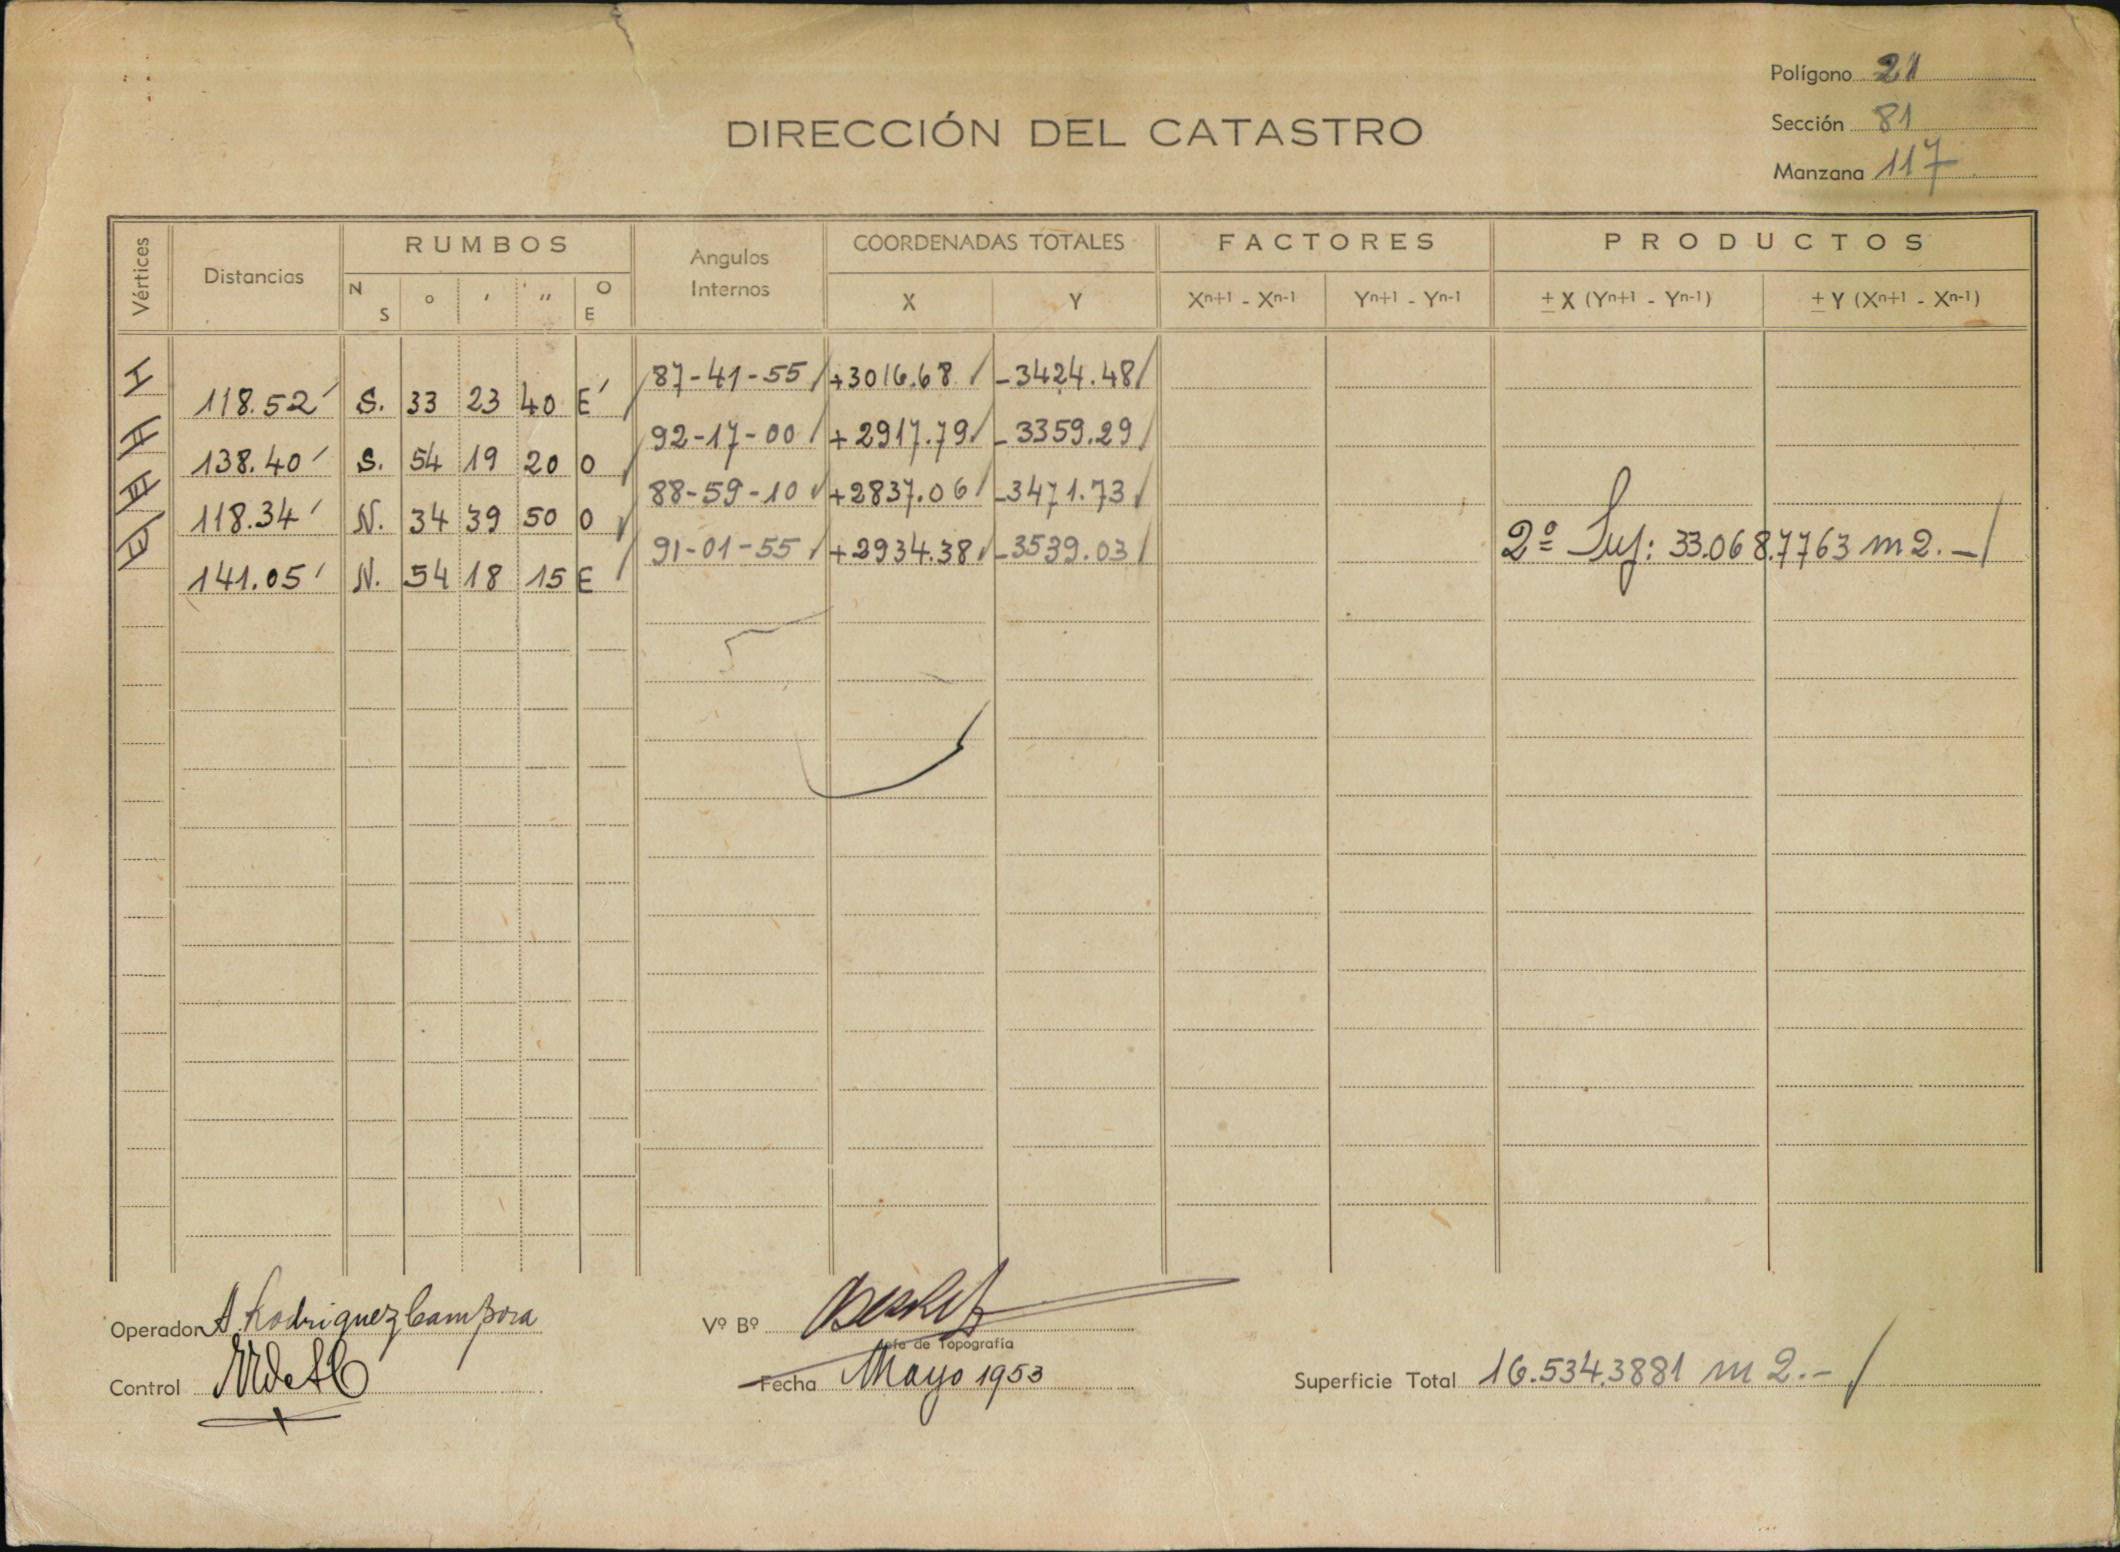 Polígono 21
Sección 81
Manzana 117
DIRECCIÓN DEL CATASTRO
Vértices Distancias RUMBOS Angulos Internos COORDENADAS TOTALES FACTORES PRODUCTOS
N S ° ' '' O E X Y Xn+1 - Xn-1 Yn+1 - Yn-1 ± X (Yn+1 - Yn-1) ± Y (Xn+1 - Xn-1)
I 87-41-55 +3016.68 -3424.48
118.52 S. 33 23 40 E
II 92-17-00 +2917.79 -3359.29
138.40 S. 54 19 20 O
III 88-59-10 +2837.06 -3471.73
118.34 N. 34 39 50 O
IV 91-01-55 +2934.38 -3539.03 2º Suf: 33.068.7763 m2.-
141.05 N. 54 18 15 E
Operador A. Rodriguez Campora
Vº Bº
Jefe de Topografía
Control
Fecha Mayo 1953
Superficie Total 16.534.3881 m2.-